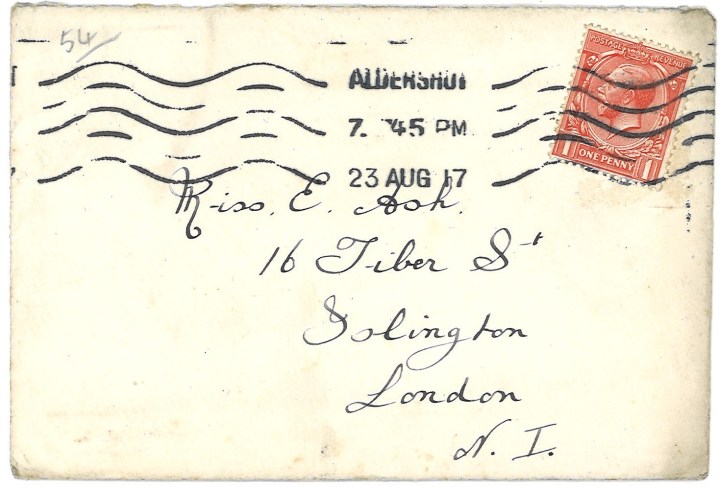 54
POSTAGE REVENUE
ALDERSHOT
7. 45 PM
23 AUG 17
1 ONE PENNY 1
Miss. E. Ash.
16 Tiber St
Islington
London
N. I.